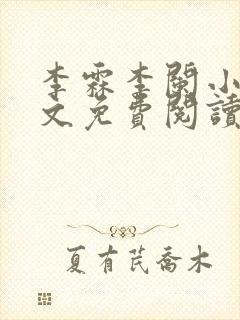 李霖李闌小
文免費閱讀
夏有芪喬木